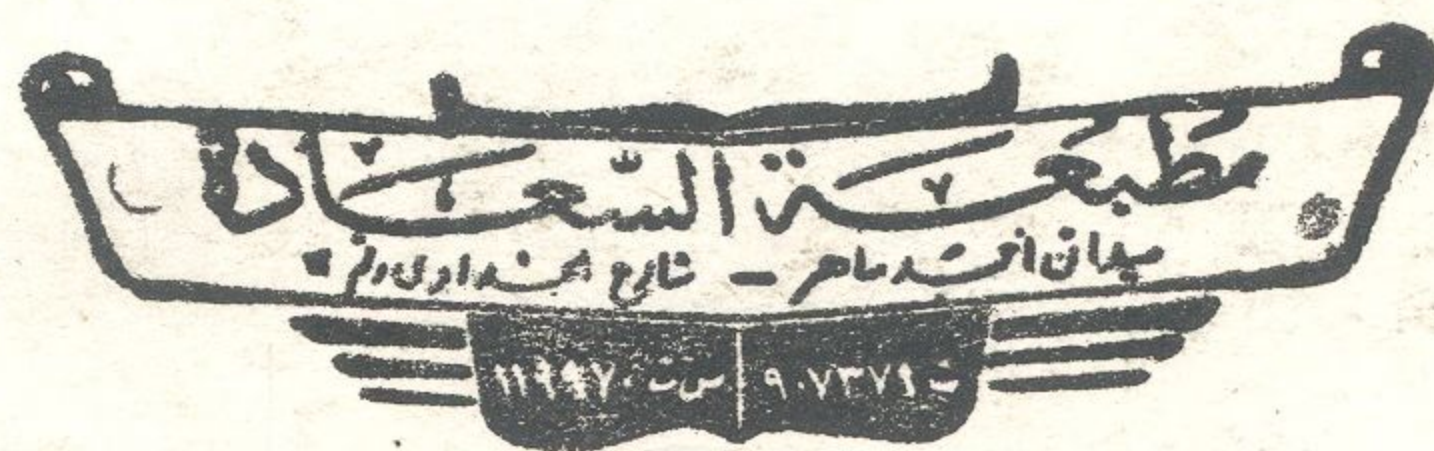 مطبعة السعادة
ميدان أحمد ماهر – شارع الجداوى رقم
ت ٩٠٧٣٧٩ س ت ١١٩٩٧٠